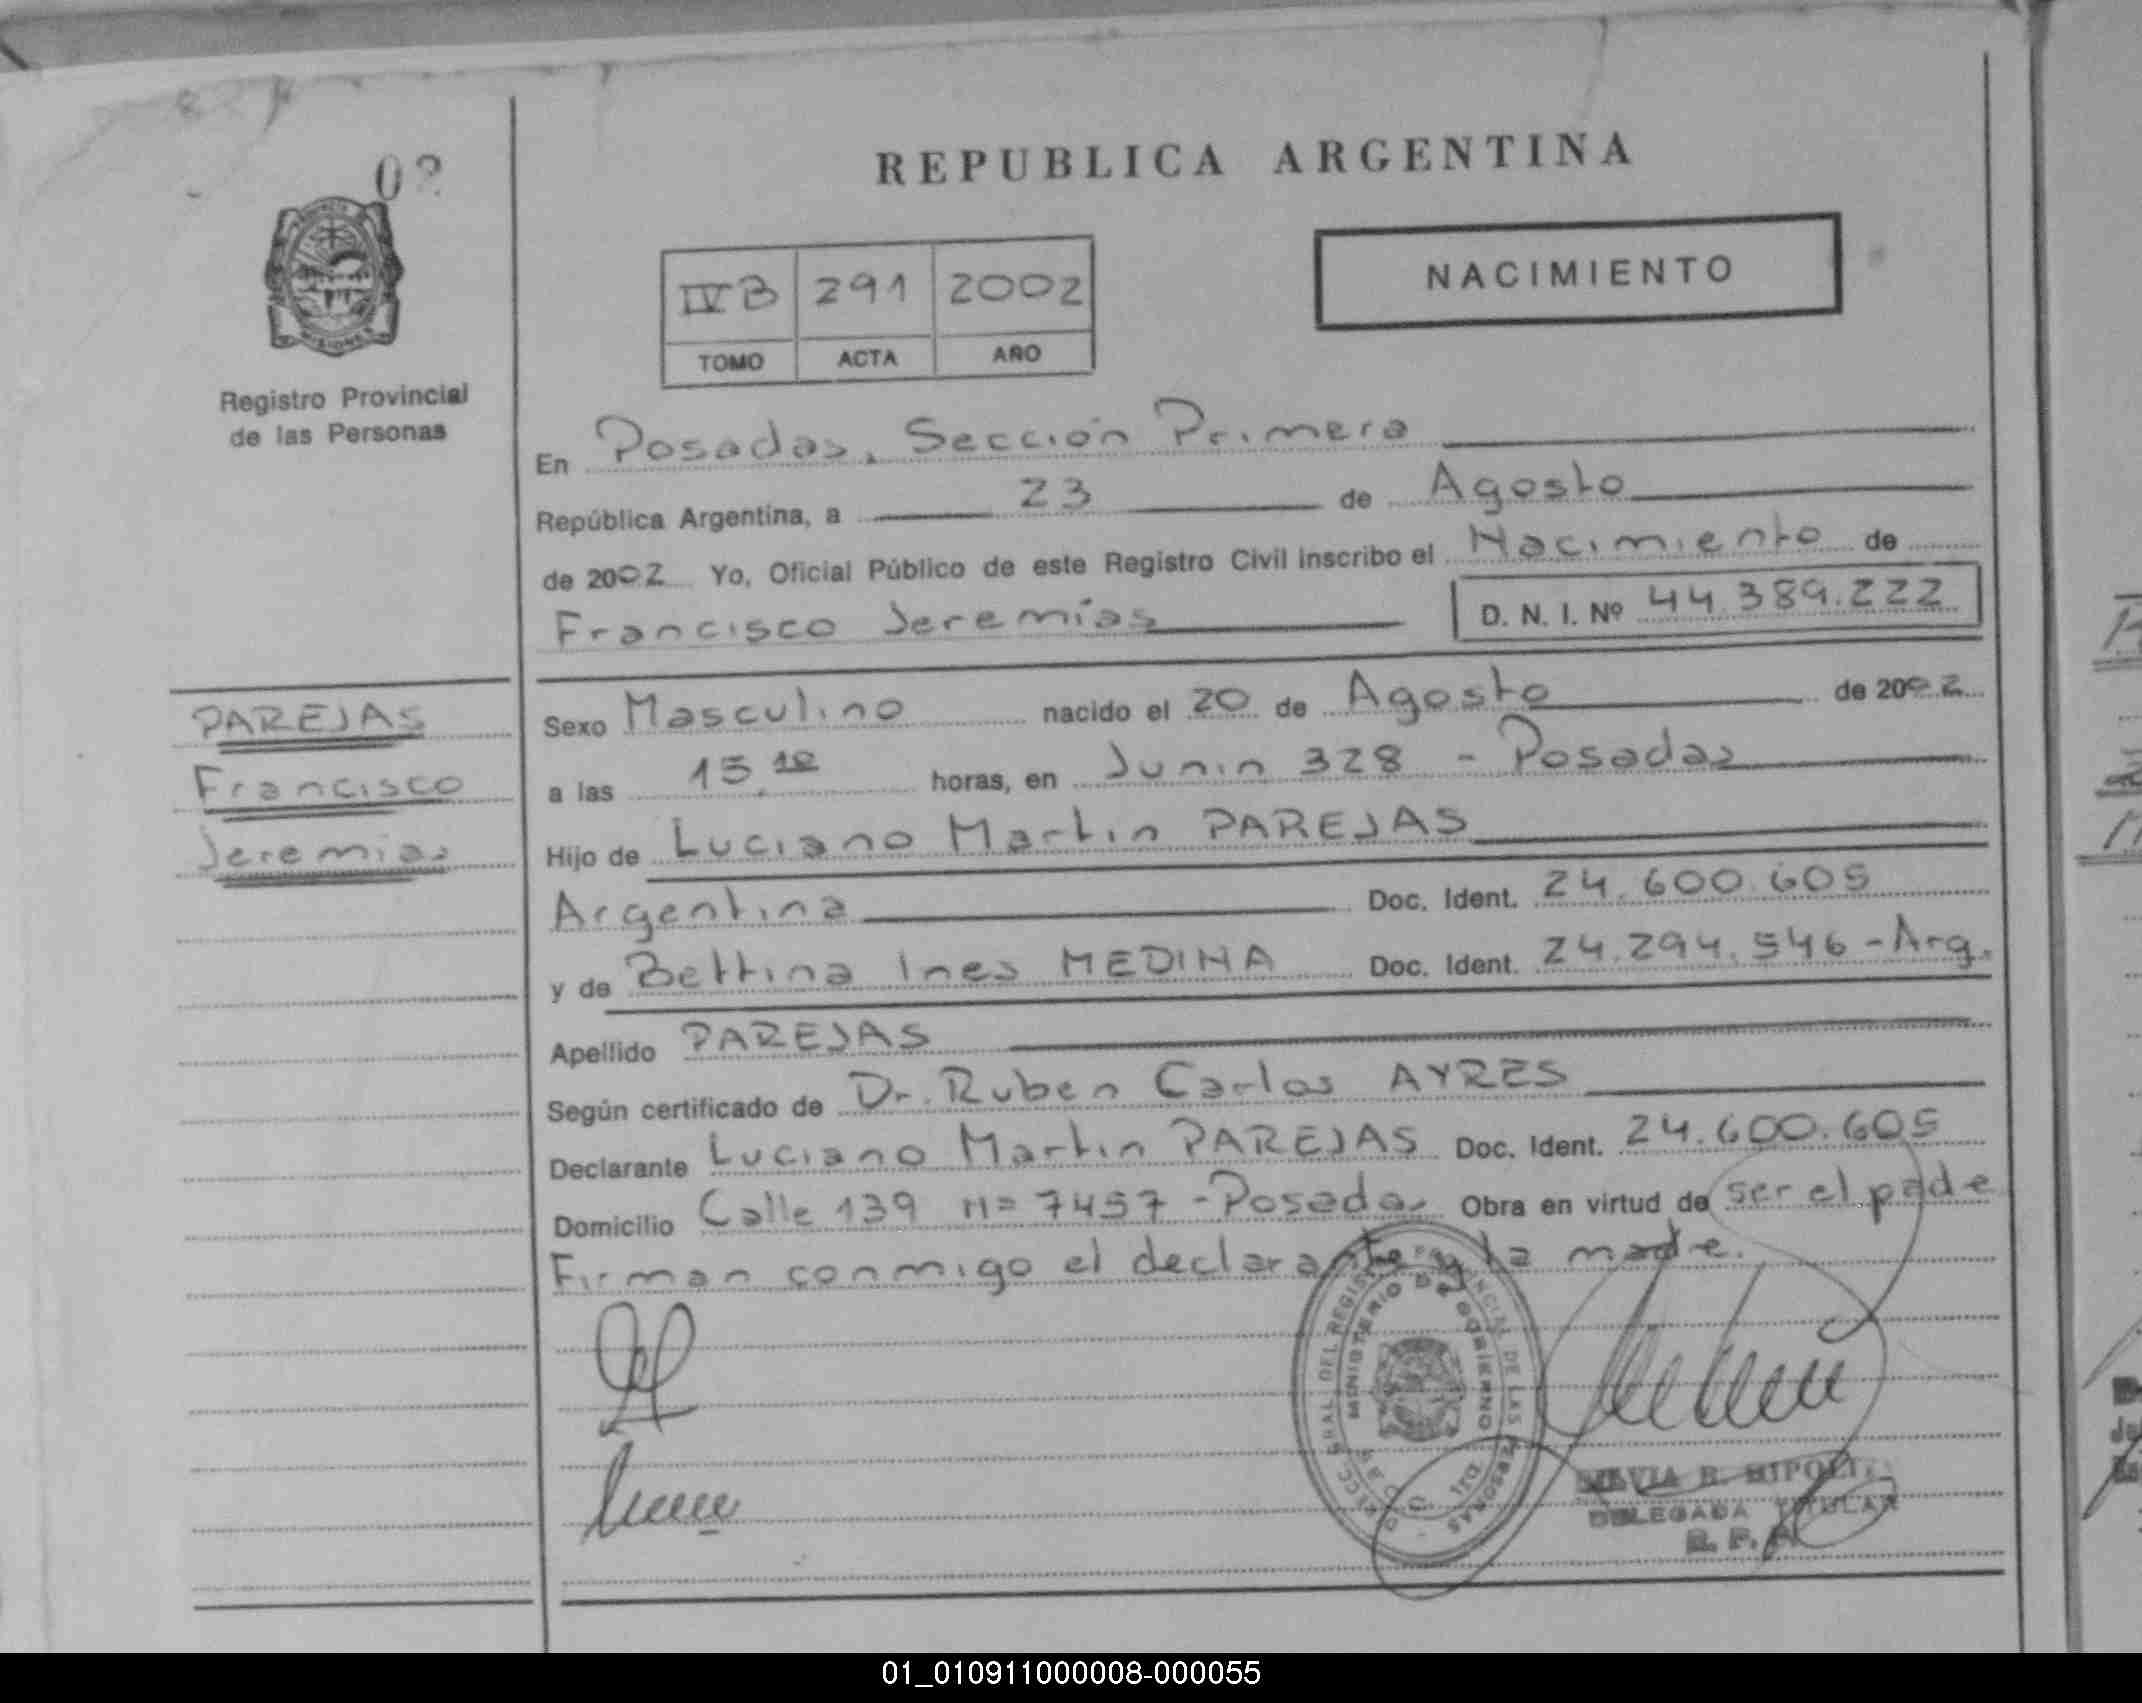 REPUBLICA ARGENTINA
NACIMIENTO
IVB 291 2002
TOMO ACTA AÑO
Registro Provincial
de las Personas
MISIONES
En Posadas, Sección Primera
República Argentina, a 23 de Agosto
de 2002 Yo, Oficial Público de este Registro Civil inscribo el Nacimiento de
Francisco Jeremías D. N. I. Nº 44.389.222
PAREJAS
Francisco
Jeremías
Sexo Masculino nacido el 20 de Agosto de 2002
a las 15,10 horas, en Junin 328 - Posadas
Hijo de Luciano Martin PAREJAS
Argentina Doc. Ident. 24.600.605
y de Bettina Ines MEDINA Doc. Ident. 24.294.546 - Arg.
Apellido PAREJAS
Según certificado de Dr. Ruben Carlos AYRES
Declarante Luciano Martin PAREJAS Doc. Ident. 24.600.605
Domicilio Calle 139 Nº 7457 - Posadas Obra en virtud de ser el padre
Firman conmigo el declarante y la madre.
MINISTERIO DE GOBIERNO
DELEGADA TITULAR
R. P. P.
01_010911000008-000055